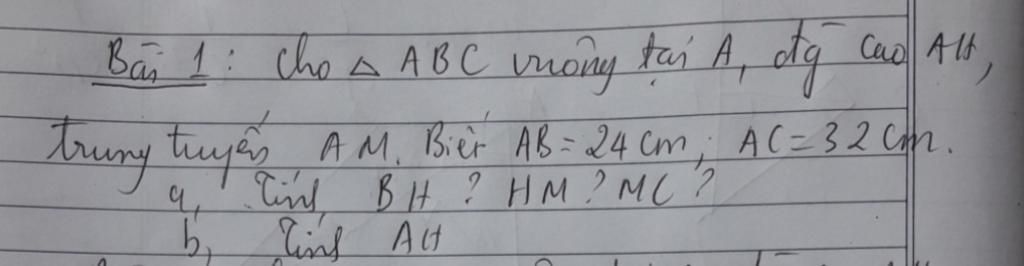 Bài 1: Cho △ ABC vuông tại A, đg cao AH,
trung tuyến AM. Biết AB = 24 cm; AC = 32 cm.
a, Tính BH? HM? MC?
b, Tính AH